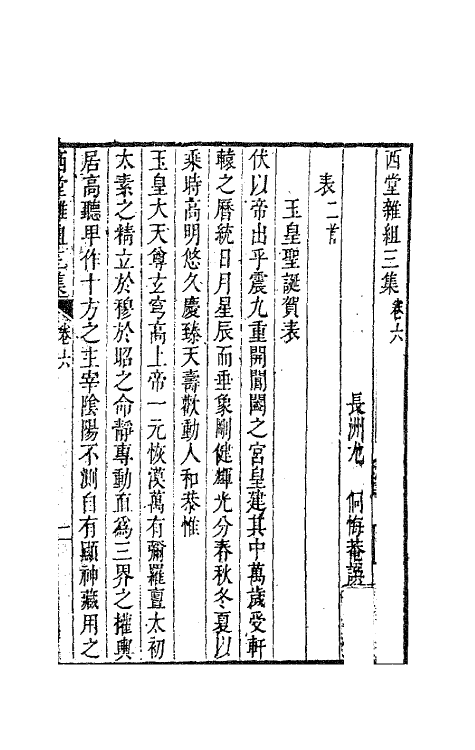 西堂雜組三集卷六
長洲尤侗悔菴譔
表二首
玉皇聖誕賀表
伏以帝出乎震九重開閶闔之宮皇建其中萬歲受軒
轅之曆統日月星辰而垂象剛健輝光分春秋冬夏以
乘時高明悠久慶臻天壽歡動人和恭惟
玉皇大天尊玄穹高上帝一元恢漠萬有彌羅亶太初
太素之精立於穆於昭之命靜專動直爲三界之權輿
居高聽卑作十方之主宰陰陽不測自有顯神藏用之
西堂雜組三集 卷六 一